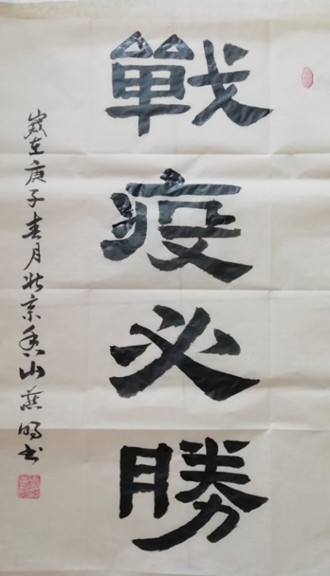 戰疫必勝
歲在庚子春月北京香山燕鳴书